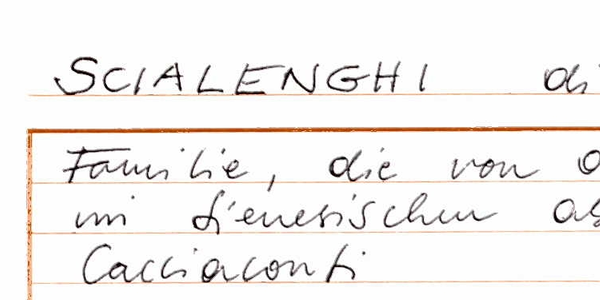 SCIALENGHI di
Familie, die von
im sienesischen
Cacciaconti